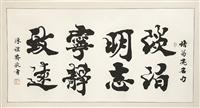 諸葛亮名句
淡泊
明志
寧靜
致遠